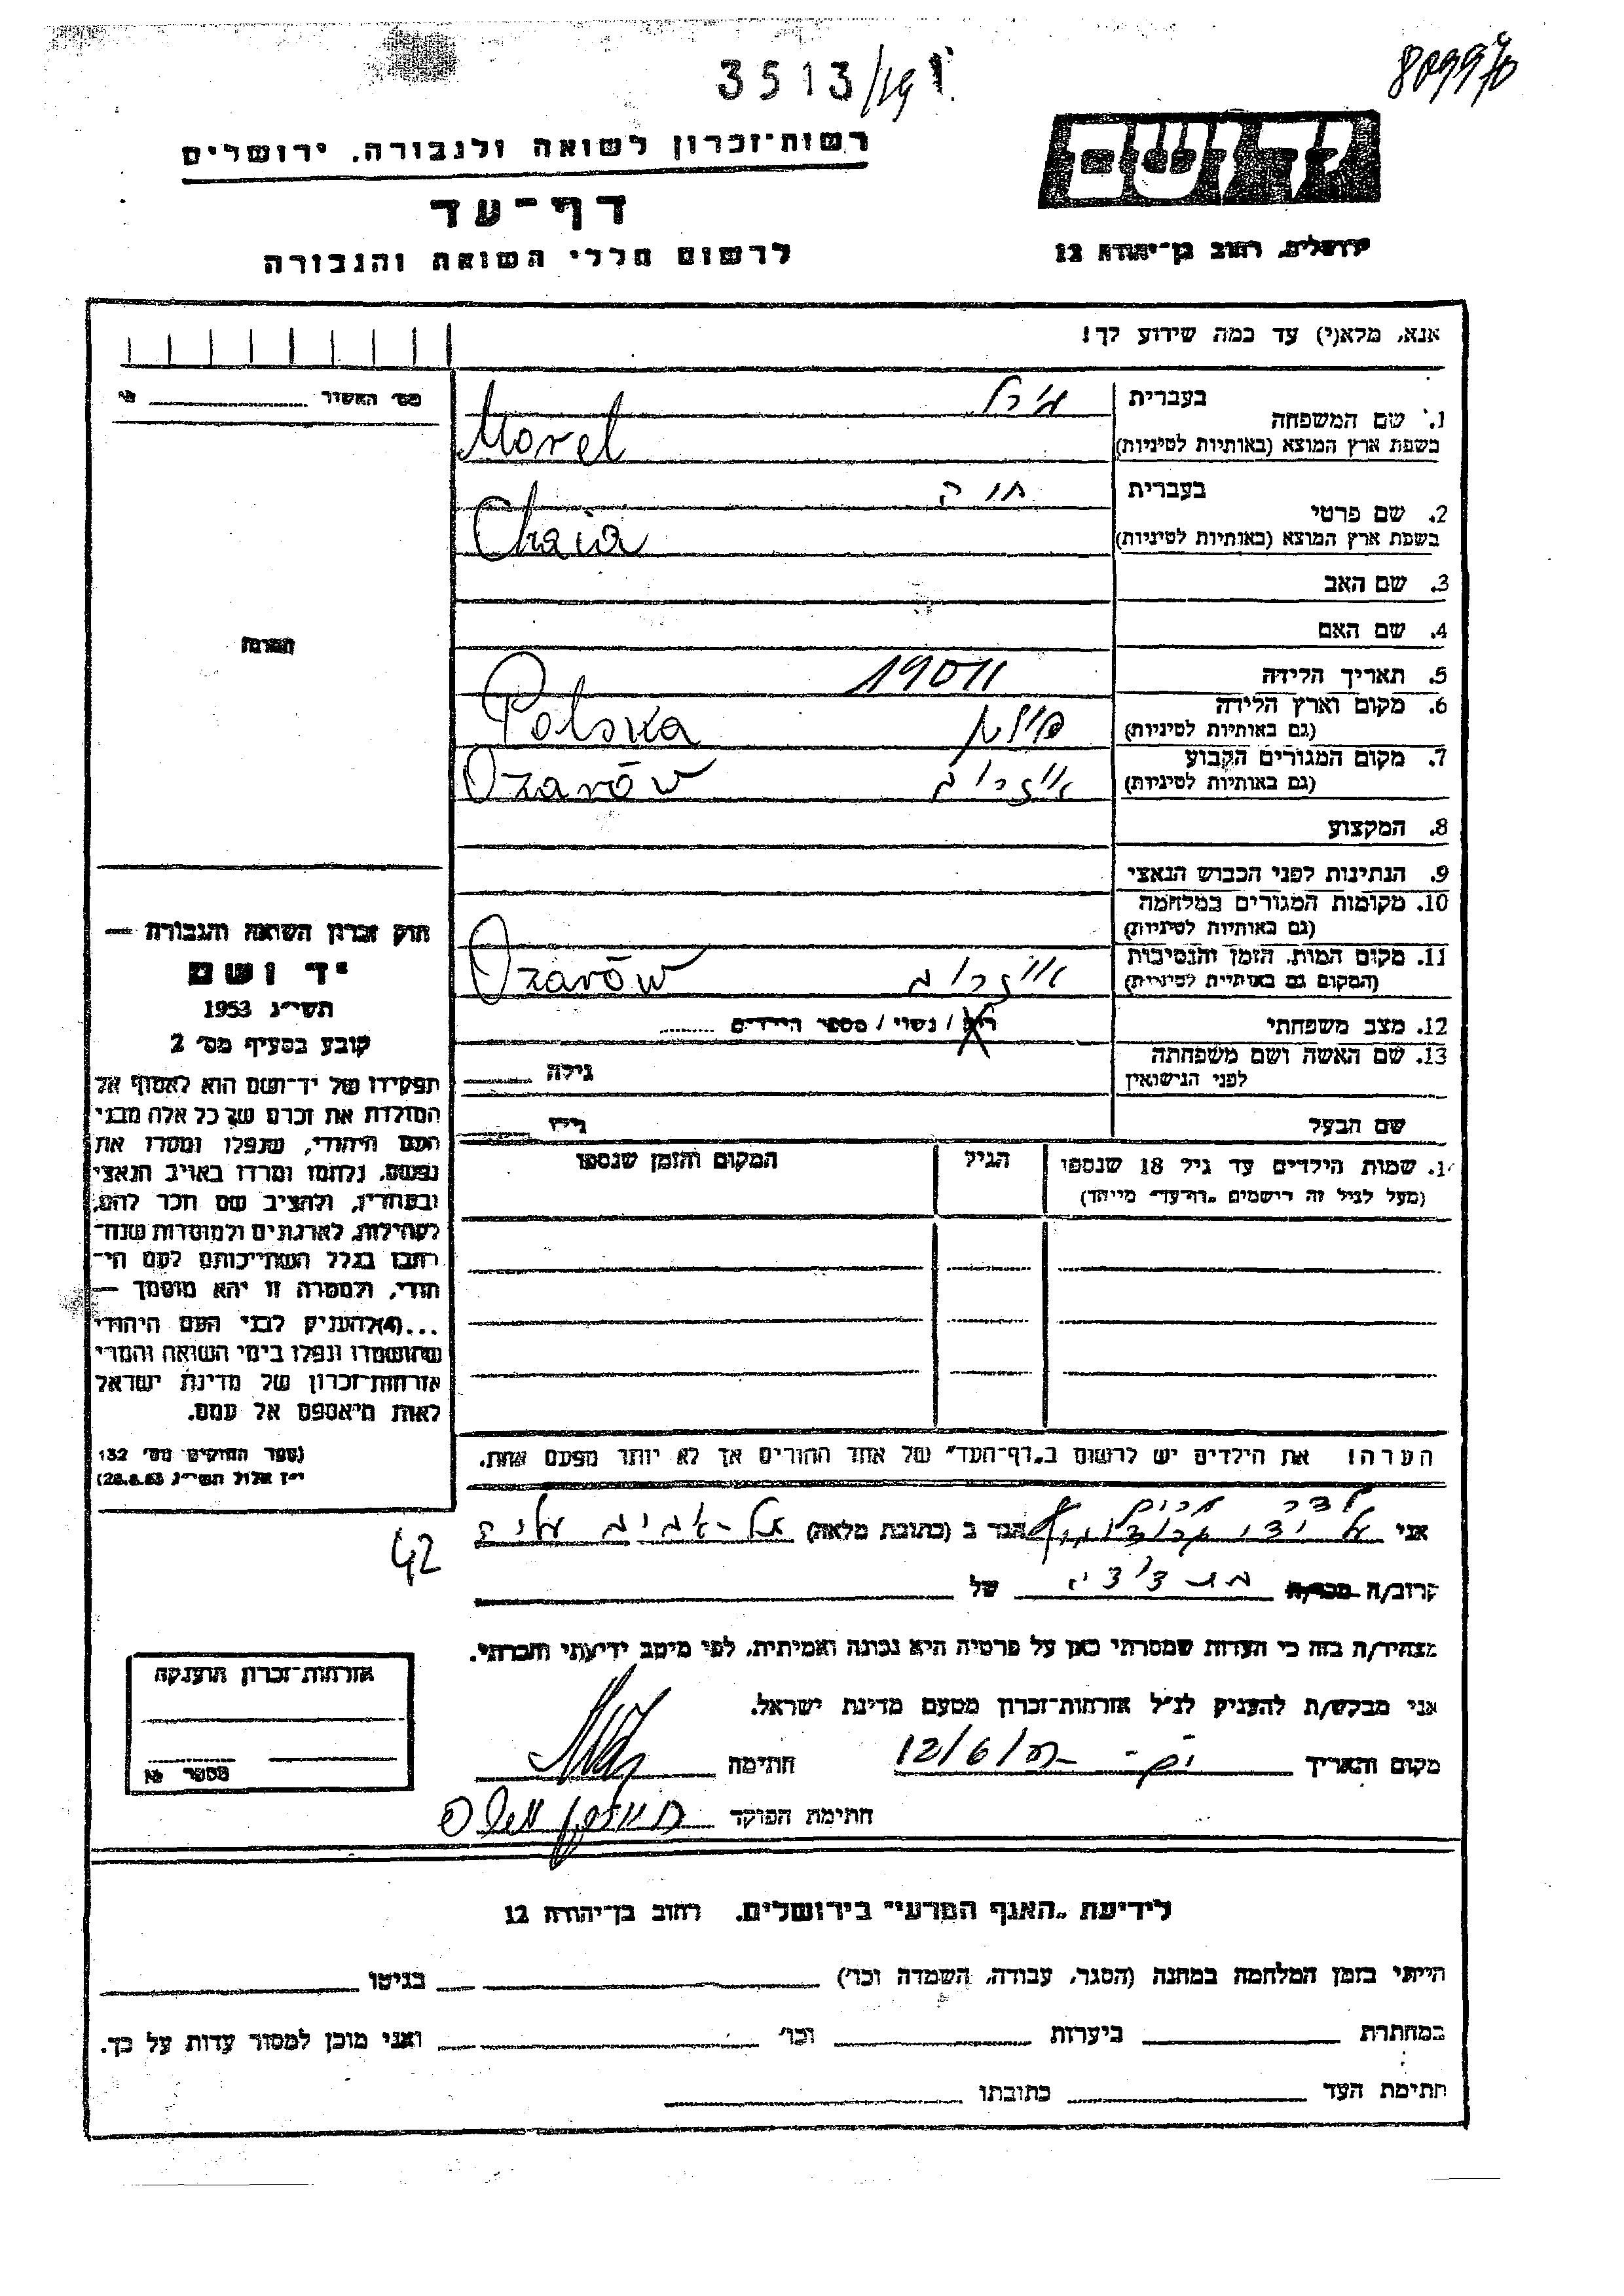 3513/
809970
רשות־זכרון לשואה ולגבורה, ירושלים
דף־עד
לרשום חללי השואה והגבורה
יד ושם
ירושלים, רחוב בן־יהודה 12
אנא, מלא(י) עד כמה שידוע לך!
מס' האשור
תמונה
1. שם המשפחה
בעברית
בשפת ארץ המוצא (באותיות לטיניות)
Morel
2. שם פרטי
בעברית חיה
בשפת ארץ המוצא (באותיות לטיניות)
Chaia
3. שם האב
4. שם האם
5. תאריך הלידה
6. מקום וארץ הלידה
(גם באותיות לטיניות)
פולין Polska
7. מקום המגורים הקבוע
(גם באותיות לטיניות)
אוזרוב Ozarów
8. המקצוע
9. הנתינות לפני הכבוש הנאצי
10. מקומות המגורים במלחמה
(גם באותיות לטיניות)
11. מקום המות, הזמן והנסיבות
(המקום גם באותיות לטיניות)
אוזרוב Ozarów
12. מצב משפחתי
רוק / נשוי / מספר הילדים
13. שם האשה ושם משפחתה
לפני הנישואין
גילה
שם הבעל
גילו
שמות הילדים עד גיל 18 שנספו
(מעל לגיל זה רישמים „דף־עד" מייחד)
הגיל
המקום והזמן שנספו
חוק זכרון השואה והגבורה —
יד ושם
תשי״ג 1953
קובע בסעיף מס' 2
תפקידו של יד־ושם הוא לאסוף אל
המולדת את זכרם של כל אלה מבני
העם היהודי, שנפלו ומסרו את
נפשם, נלחמו ומרדו באויב הנאצי
ובעוזריו, ולהציב שם וזכר להם,
לקהילות, לארגונים ולמוסדות שנח־
רבו בגלל השתייכותם לעם הי־
הודי, ולמטרה זו יהא מוסמך —
...(4)להעניק לבני העם היהודי
שהושמדו ונפלו בימי השואה והמרי
אזרחות־זכרון של מדינת ישראל
לאות היאספם אל עמם.
(ספר החוקים מס' 132
י״ז אלול תשי״ג 28.8.53)
הערה! את הילדים יש לרשום ב„דף־העד" של אחד ההורים אך לא יותר מפעם אחת.
אני
הגר ב (כתובת מלאה) תל-אביב
42
קרוב/ה מכר/ה
של
מצהיר/ה בזה כי העדות שמסרתי כאן על פרטיה היא נכונה ואמיתית, לפי מיטב ידיעתי והכרתי.
אני מבקש/ת להעניק לנ״ל אזרחות־זכרון מטעם מדינת ישראל.
מקום ותאריך
חתימה
חתימת הפוקד
אזרחות־זכרון הוענקה
מספר
לידיעת „האגף המדעי" בירושלים, רחוב בן־יהודה 12
הייתי בזמן המלחמה במחנה (הסגר, עבודה, השמדה וכו')
בגיטו
במחתרת
ביערות
וכו'
ואני מוכן למסור עדות על כך.
חתימת העד
כתובתו